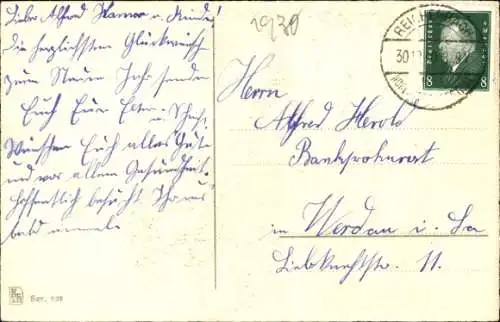 Liebe Alfred Hanna u. Kinder!
Die herzlichsten Glückwünsch
zum Neuen Jahr senden
Euch Eure Eltern u.
Wünschen Euch alles Gute
und vor allem Gesundheit.
Hoffentlich besucht Ihr uns
bald einmal
1930
REICHENBACH
30.12
Deutsches Reich
8 8
Herrn
Alfred Herold
Bankprokurist
in Werdau i. Sa
Liebknechtstr. 11.
Ser. 538